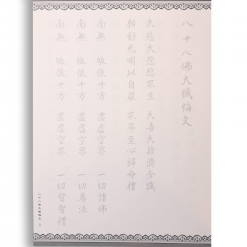 八十八佛大懺悔文
大慈大悲愍眾生 大喜大捨濟含識
相好光明以自嚴 眾等至心歸命禮
南無 皈依十方 盡虛空界 一切諸佛
南無 皈依十方 盡虛空界 一切尊法
南無 皈依十方 盡虛空界 一切賢聖僧